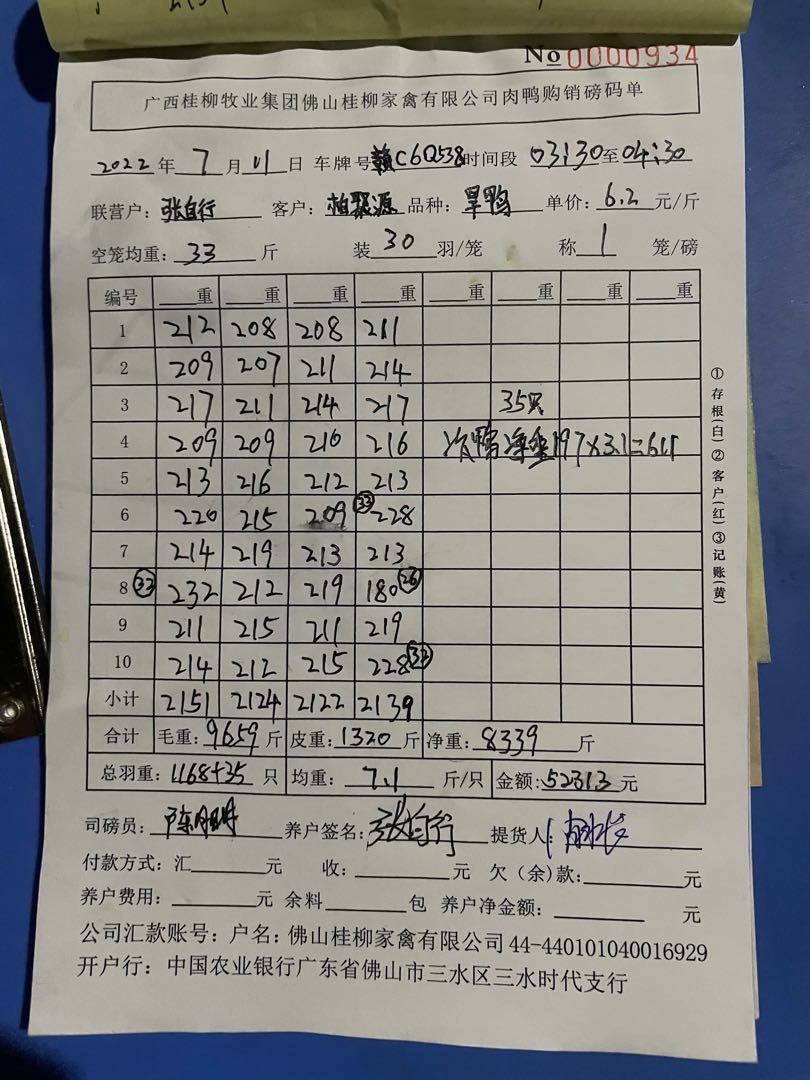 No 0000934
广西桂柳牧业集团佛山桂柳家禽有限公司肉鸭购销磅码单
2022年7月11日 车牌号赣C6Q538时间段 03:30至04:30
联营户:张自行 客户:柏聚源 品种:旱鸭 单价:6.2元/斤
空笼均重:33斤 装30羽/笼 称1笼/磅
编号 重 重 重 重 重 重 重 重
1 212 208 208 211
2 209 207 211 214
3 217 211 214 217 35只
4 209 209 210 216 次鸭 净重197×3.1=611
5 213 216 212 213
6 220 215 209 ㉝228
7 214 219 213 213
8㉝ 232 212 219 180㉖
9 211 215 211 219
10 214 212 215 228㉝
小计 2151 2124 2122 2139
合计 毛重:9659斤 皮重:1320斤 净重:8339斤
总羽重:1168+35只 均重:7.1斤/只 金额:52313元
司磅员: 养户签名:张自行 提货人:
付款方式:汇 元 收: 元 欠(余)款: 元
养户费用: 元 余料 包 养户净金额: 元
公司汇款账号:户名:佛山桂柳家禽有限公司44-440101040016929
开户行:中国农业银行广东省佛山市三水区三水时代支行
①存根(白)②客户(红)③记账(黄)